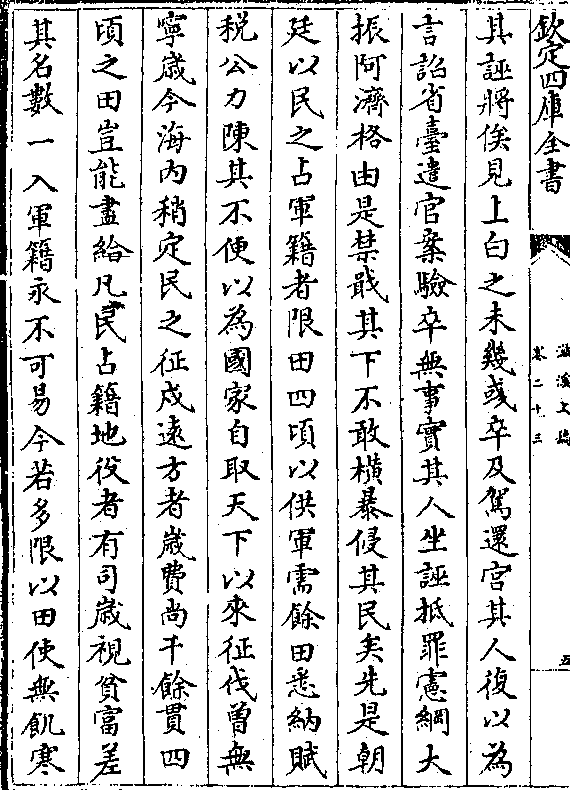 欽定四庫全書
滋溪文稿
卷二十三
五
其誣將俟見上白之未幾彧卒及駕還宮其人復以為
言詔省臺遣官案驗卒無事實其人坐誣抵罪憲綱大
振阿濟格由是禁戢其下不敢横暴侵其民矣先是朝
廷以民之占軍籍者限田四頃以供軍需餘田悉納賦
税公力陳其不便以為國家自取天下以來征伐曽無
寧歲今海内稍定民之征戍遠方者歲費尚千餘貫四
頃之田豈能盡給凡民占籍地役者有司歲視貧富差
其名數一入軍籍永不可易今若多限以田使無飢寒